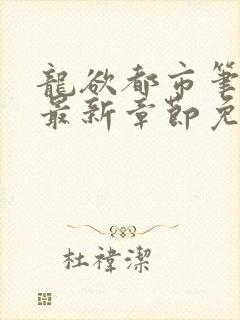 龍欲都市筆
最新章節免
杜禕潔